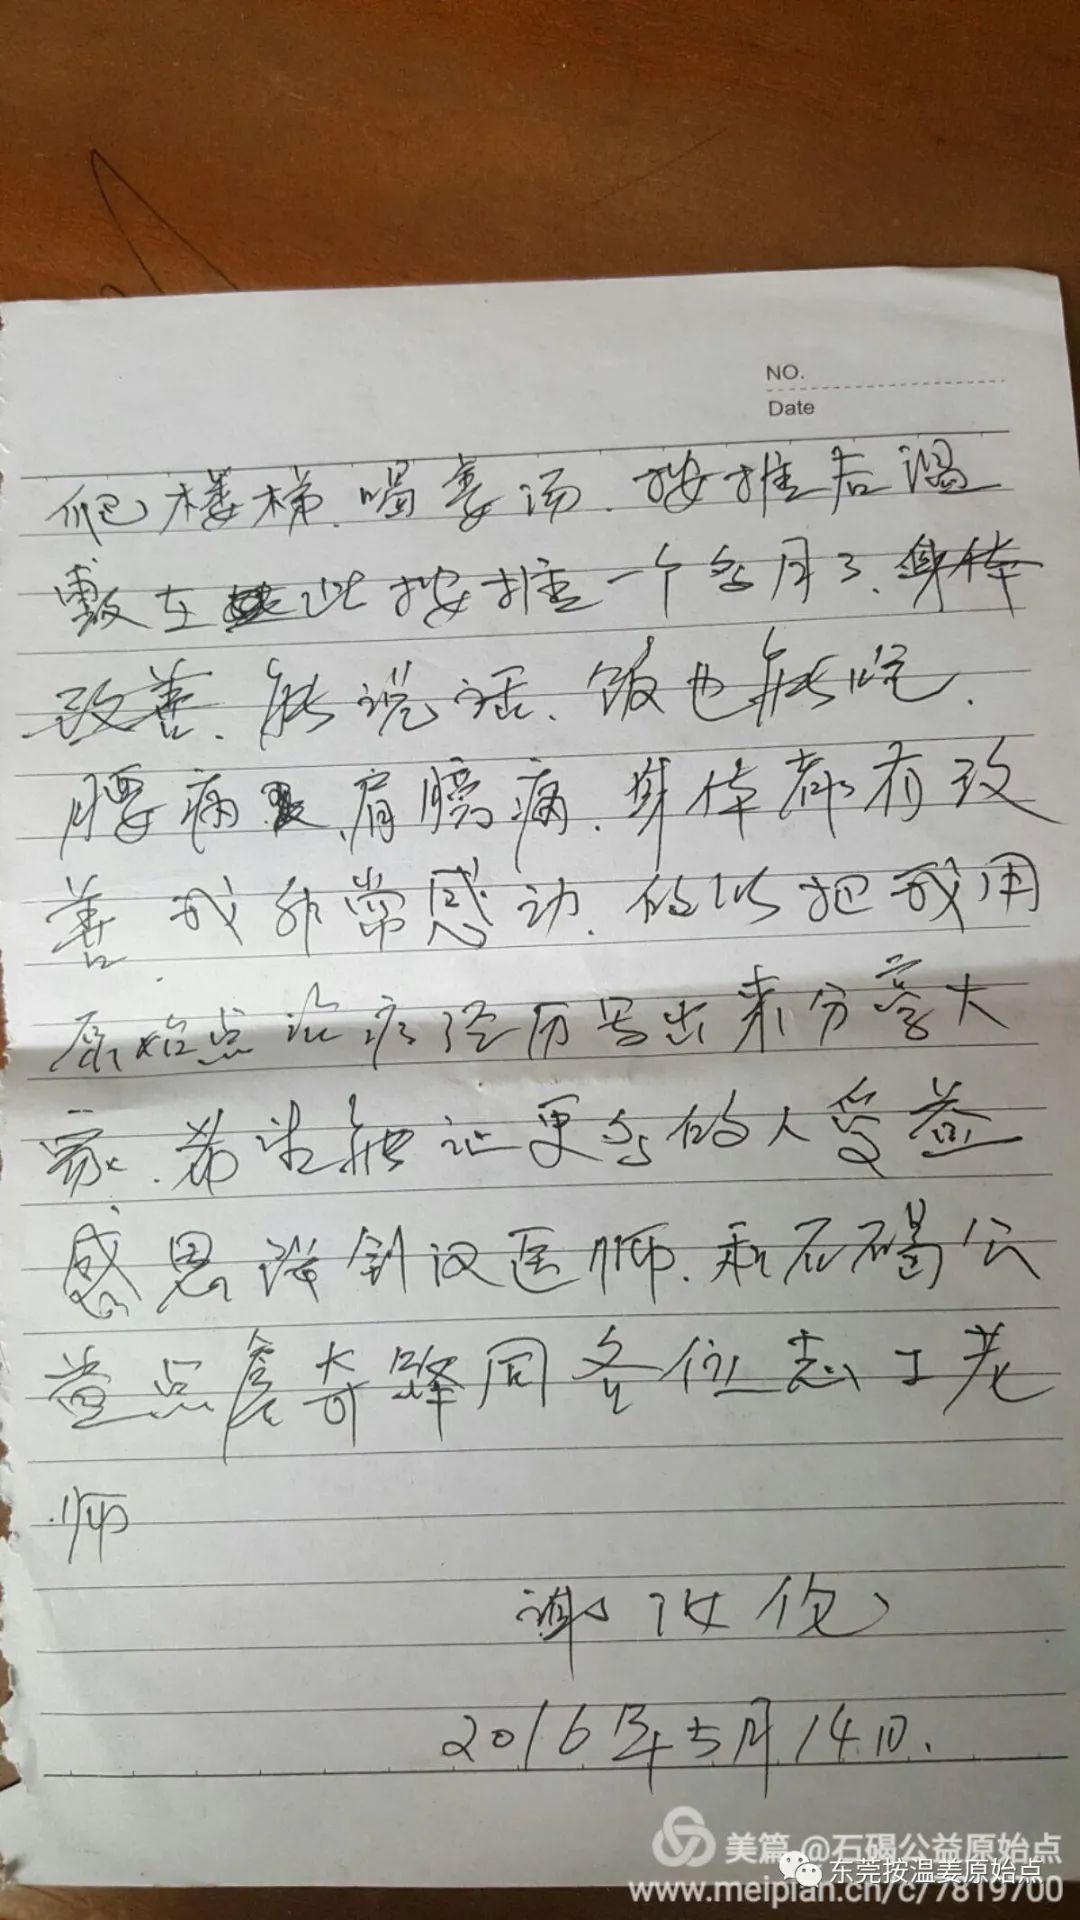 NO.
Date
爬楼梯、喝姜汤、按推后温
敷在此按推一个多月了、身体
改善、能说话、饭也能吃、
腰痛、肩膀痛、身体都有改
善、我非常感动、所以把我用
原始点治病经历写出来分享大
家、希望能让更多的人受益
感恩张钊汉医师、和石碣公
益点詹奇锋同各位志工老
师
谢汝伦
2016年5月14日.
美篇 @石碣公益原始点
东莞按温姜原始点
www.meipian.cn/c/7819700